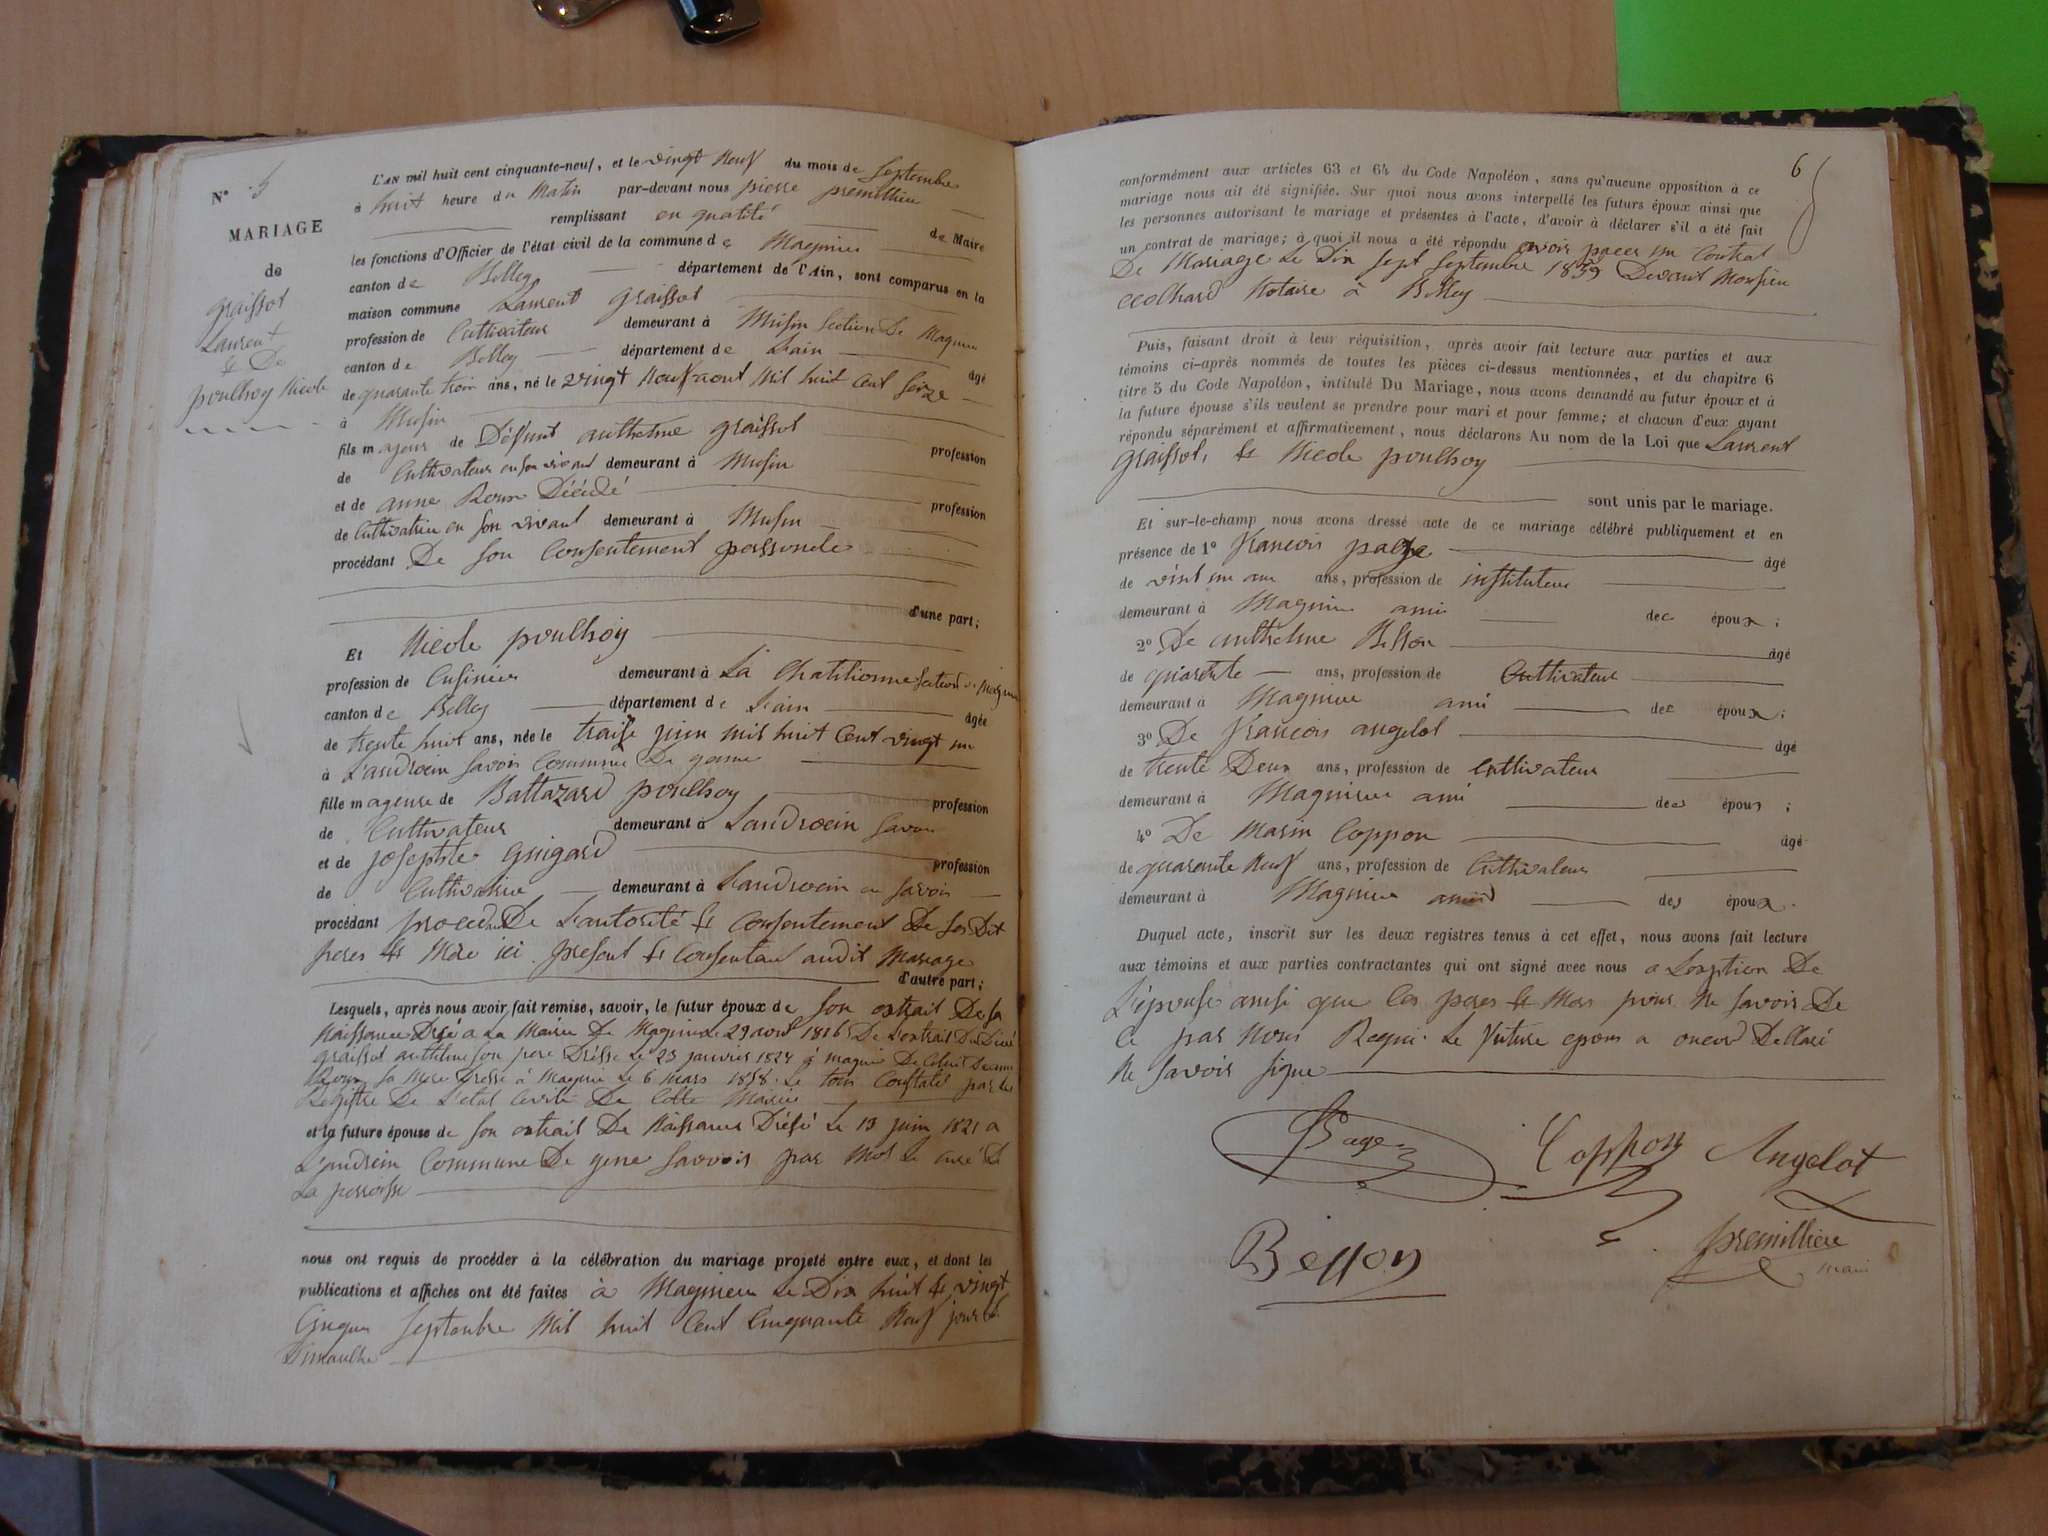 N° 5
MARIAGE
de
graissot
Laurent
& De
poulhoy Nicole
L'AN mil huit cent cinquante-neuf, et le vingt Neuf du mois de Septembre
à huit heure du Matin par-devant nous pierre premillieu
remplissant en qualité de Maire
les fonctions d'Officier de l'état civil de la commune de Magnieu
canton de Belley département de l'Ain, sont comparus en la
maison commune Laurent graissot
profession de Cultivateur demeurant à Musin Section De Magnieu
canton de Belley département de L'ain âgé
de quarante trois ans, né le vingt Neuf aout Mil huit Cent Seize
à Musin
fils majeur de Défunt anthelme graissot profession
de Cultivateur en son vivant demeurant à Musin
et de anne Roux Décédé profession
de Cultivatrice en son vivant demeurant à Musin
procédant De son Consentement personele
d'une part;
Et Nicole poulhoy
profession de Cusiniere demeurant à La Chatilionne Section
canton de Belley département de L'ain âgée
de trente huit ans, née le traise juin mil huit Cent vingt un
à Landrecin Savois Commune De yenne
fille mageure de Baltazard poulhoy profession
de Cultivateur demeurant à Landrecin Savoi
et de josephte guigard profession
de Cultivatrice demeurant à Landrecin en Savois
procédant procedant De L'autorité & Consentement De Ses Dit
peres & Mère ici present & Consentant audit Mariage
d'autre part;
Lesquels, après nous avoir fait remise, savoir, le futur époux de Son extrait De Sa
Naissance Dréssé a La Mairie De Magnieu Le 29 aout 1816 De L'extrait Du Décé
graissot anthelme Son pere Dréssé Le 23 janvier 1824 à magnieu De Celui
Roux Sa Mere Dressé à Magnieu Le 6 mars 1858. Le tous Constaté par Les
Registre De L'etat Civile De Cette Mairie
et la future épouse de Son extrait De Naissance Dréssé Le 13 juin 1821 a
Landrecin Commune De yene Savois par Mr Le curé De
La perroisse
nous ont requis de procéder à la célébration du mariage projeté entre eux, et dont les
publications et affiches ont été faites à Magnieu Le Dix huit & vingt
Cinque Septembre Mil huit Cent Cinquante Neuf jours De
Dimanche
6
conformément aux articles 63 et 64 du Code Napoléon, sans qu'aucune opposition à ce
mariage nous ait été signifiée. Sur quoi nous avons interpellé les futurs époux ainsi que
les personnes autorisant le mariage et présentes à l'acte, d'avoir à déclarer s'il a été fait
un contrat de mariage; à quoi il nous a été répondu avoir passer un Contrat
De Mariage Le Dix Sept Septembre 1859 Devant Monsieu
Notaire à Belley
Puis, faisant droit à leur réquisition, après avoir fait lecture aux parties et aux
témoins ci-après nommés de toutes les pièces ci-dessus mentionnées, et du chapitre 6
titre 5 du Code Napoléon, intitulé Du Mariage, nous avons demandé au futur époux et à
la future épouse s'ils veulent se prendre pour mari et pour femme; et chacun d'eux ayant
répondu séparément et affirmativement, nous déclarons Au nom de la Loi que Laurent
graissot, & Nicole poulhoy
sont unis par le mariage.
Et sur-le-champ nous avons dressé acte de ce mariage célébré publiquement et en
présence de 1° francois page âgé
de vint un an ans, profession de instituteur
demeurant à Magnieu ami des époux;
2° De anthelme Besson âgé
de quarente ans, profession de Cultivateur
demeurant à Magnieu ami des époux;
3° De francois angelot âgé
de trente Deux ans, profession de Cultivateur
demeurant à Magnieu ami des époux;
4° De Marin Coppon âgé
de quarente Neuf ans, profession de Cultivateur
demeurant à Magnieu amis des époux.
Duquel acte, inscrit sur les deux registres tenus à cet effet, nous avons fait lecture
aux témoins et aux parties contractantes qui ont signé avec nous a Lexption De
L'épouse ainsi que les peres & Mers pour Ne Savoir De
Ce par Nous Requi. Le future epoux a oncor Dellaré
Ne Savoir signe
Page
Coppon
Angelot
Besson
premillieu
maire